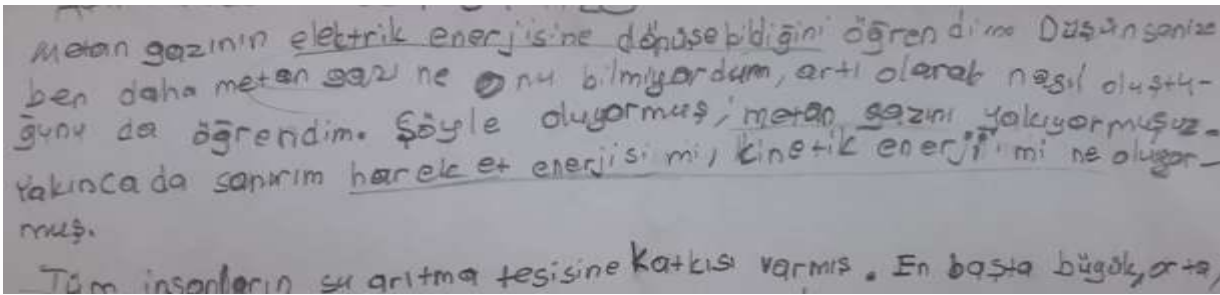 Metan gazının elektrik enerjisine dönüşebildiğini öğrendim. Düşünsenize
ben daha metan gazı ne onu bilmiyordum, artı olarak nasıl oluştu-
ğunu da öğrendim. Şöyle oluyormuş; metan gazını yakıyormuşuz.
Yakınca da sanırım hareket enerjisi mi, kinetik enerji mi ne oluyor-
muş.
Tüm insanların su arıtma tesisine katkısı varmış. En başta büyük, orta,